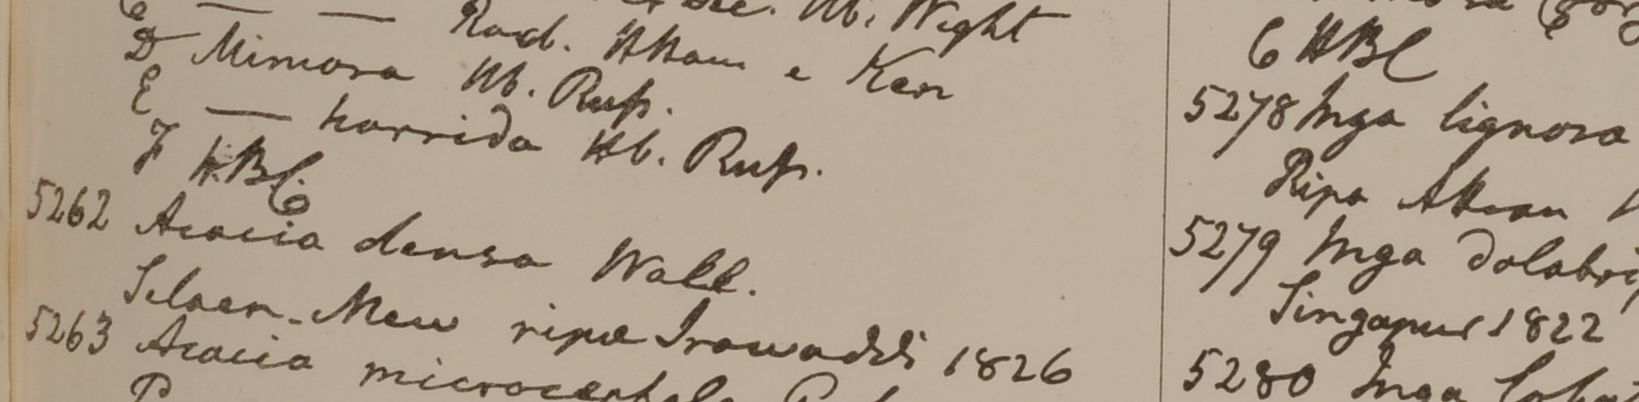 Hb. Wight
Rad. Attran e Ken
D Mimosa Hb. Russ.
E — horrida Hb. Russ.
F HBC
5262 Acacia densa Wall.
ripa Irawaddi 1826
5263 Acacia microcephala
6 HBC
5278 Inga lignosa
Ripa Attran
5279 Inga dolabri
Singapur 1822
5280 Inga